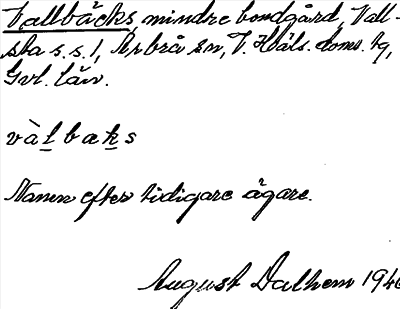 Vallbäcks, mindre bondgård, Vall-
sta s.s.1, Arbrå sn, V. Häls. doms. hg,
Gvl. län.
vàlbaks
Namn efter tidigare ägare.
August Dalhem 1946